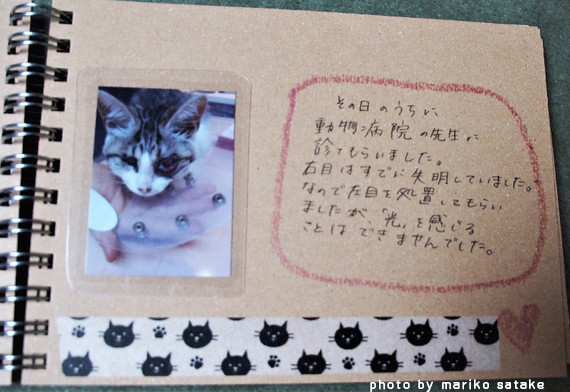 その日のうちに
動物病院の先生に
診てもらいました。
右目はすでに失明していました。
なので左目を処置してもらい
ましたが、「光」を感じる
ことはできませんでした。
photo by mariko satake